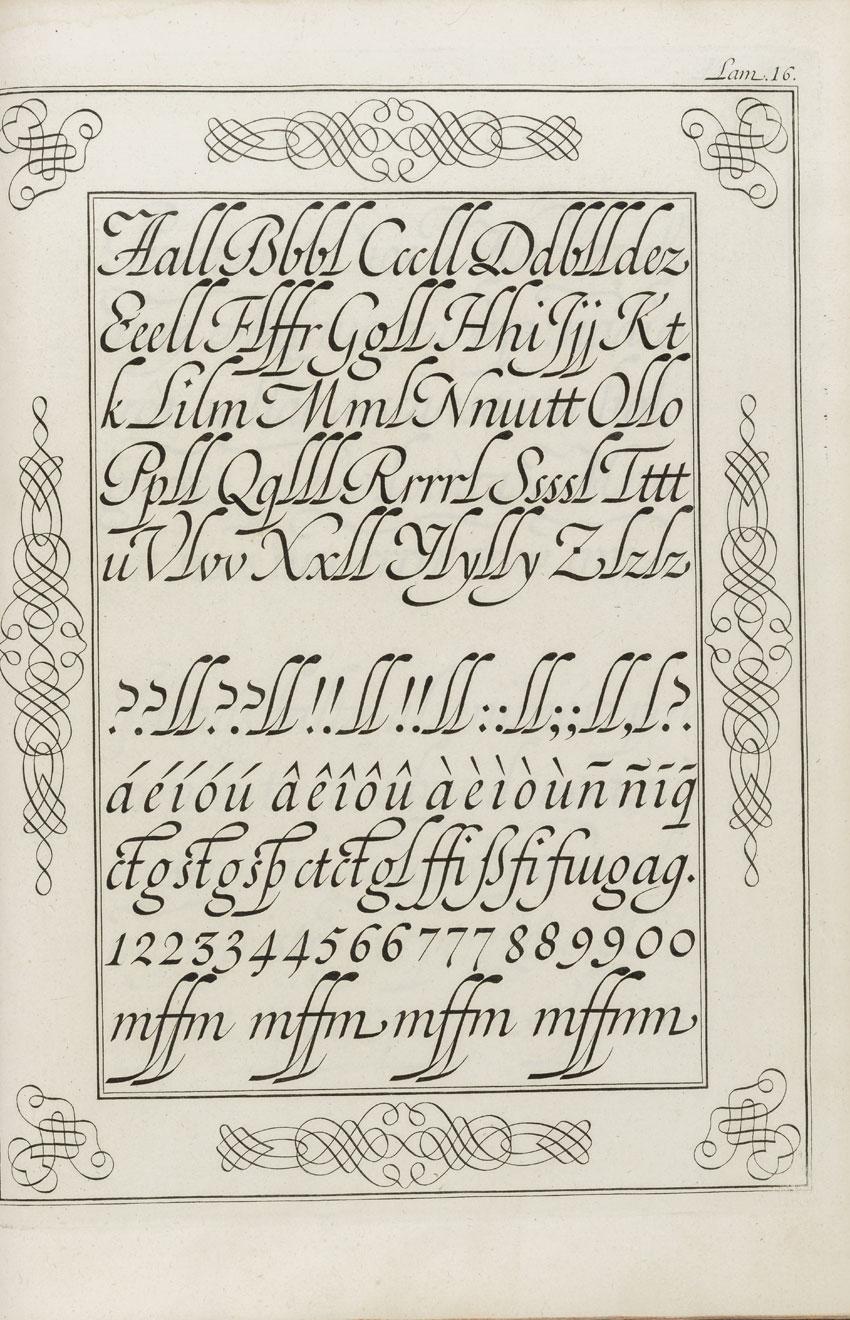 Lam. 16.
Aall Bbbl Cccll Ddblldez
Eeell Flffr Ggll Hhi Jjj Kt
k Lilm Mml Nnuutt Ollo
Ppll Qqlll Rrrrl Ssssl Tttt
uVlvv Xxll Ylylly Zlzlz
??ll??ll!!ll!!ll::ll;;ll,l?.
áéíóú âêîôû àèìòùñ ñīq̃
ctgstgsp ctctgl ffi ßfifiugag.
1223344566777889900
mffm mffm mffm mffmm